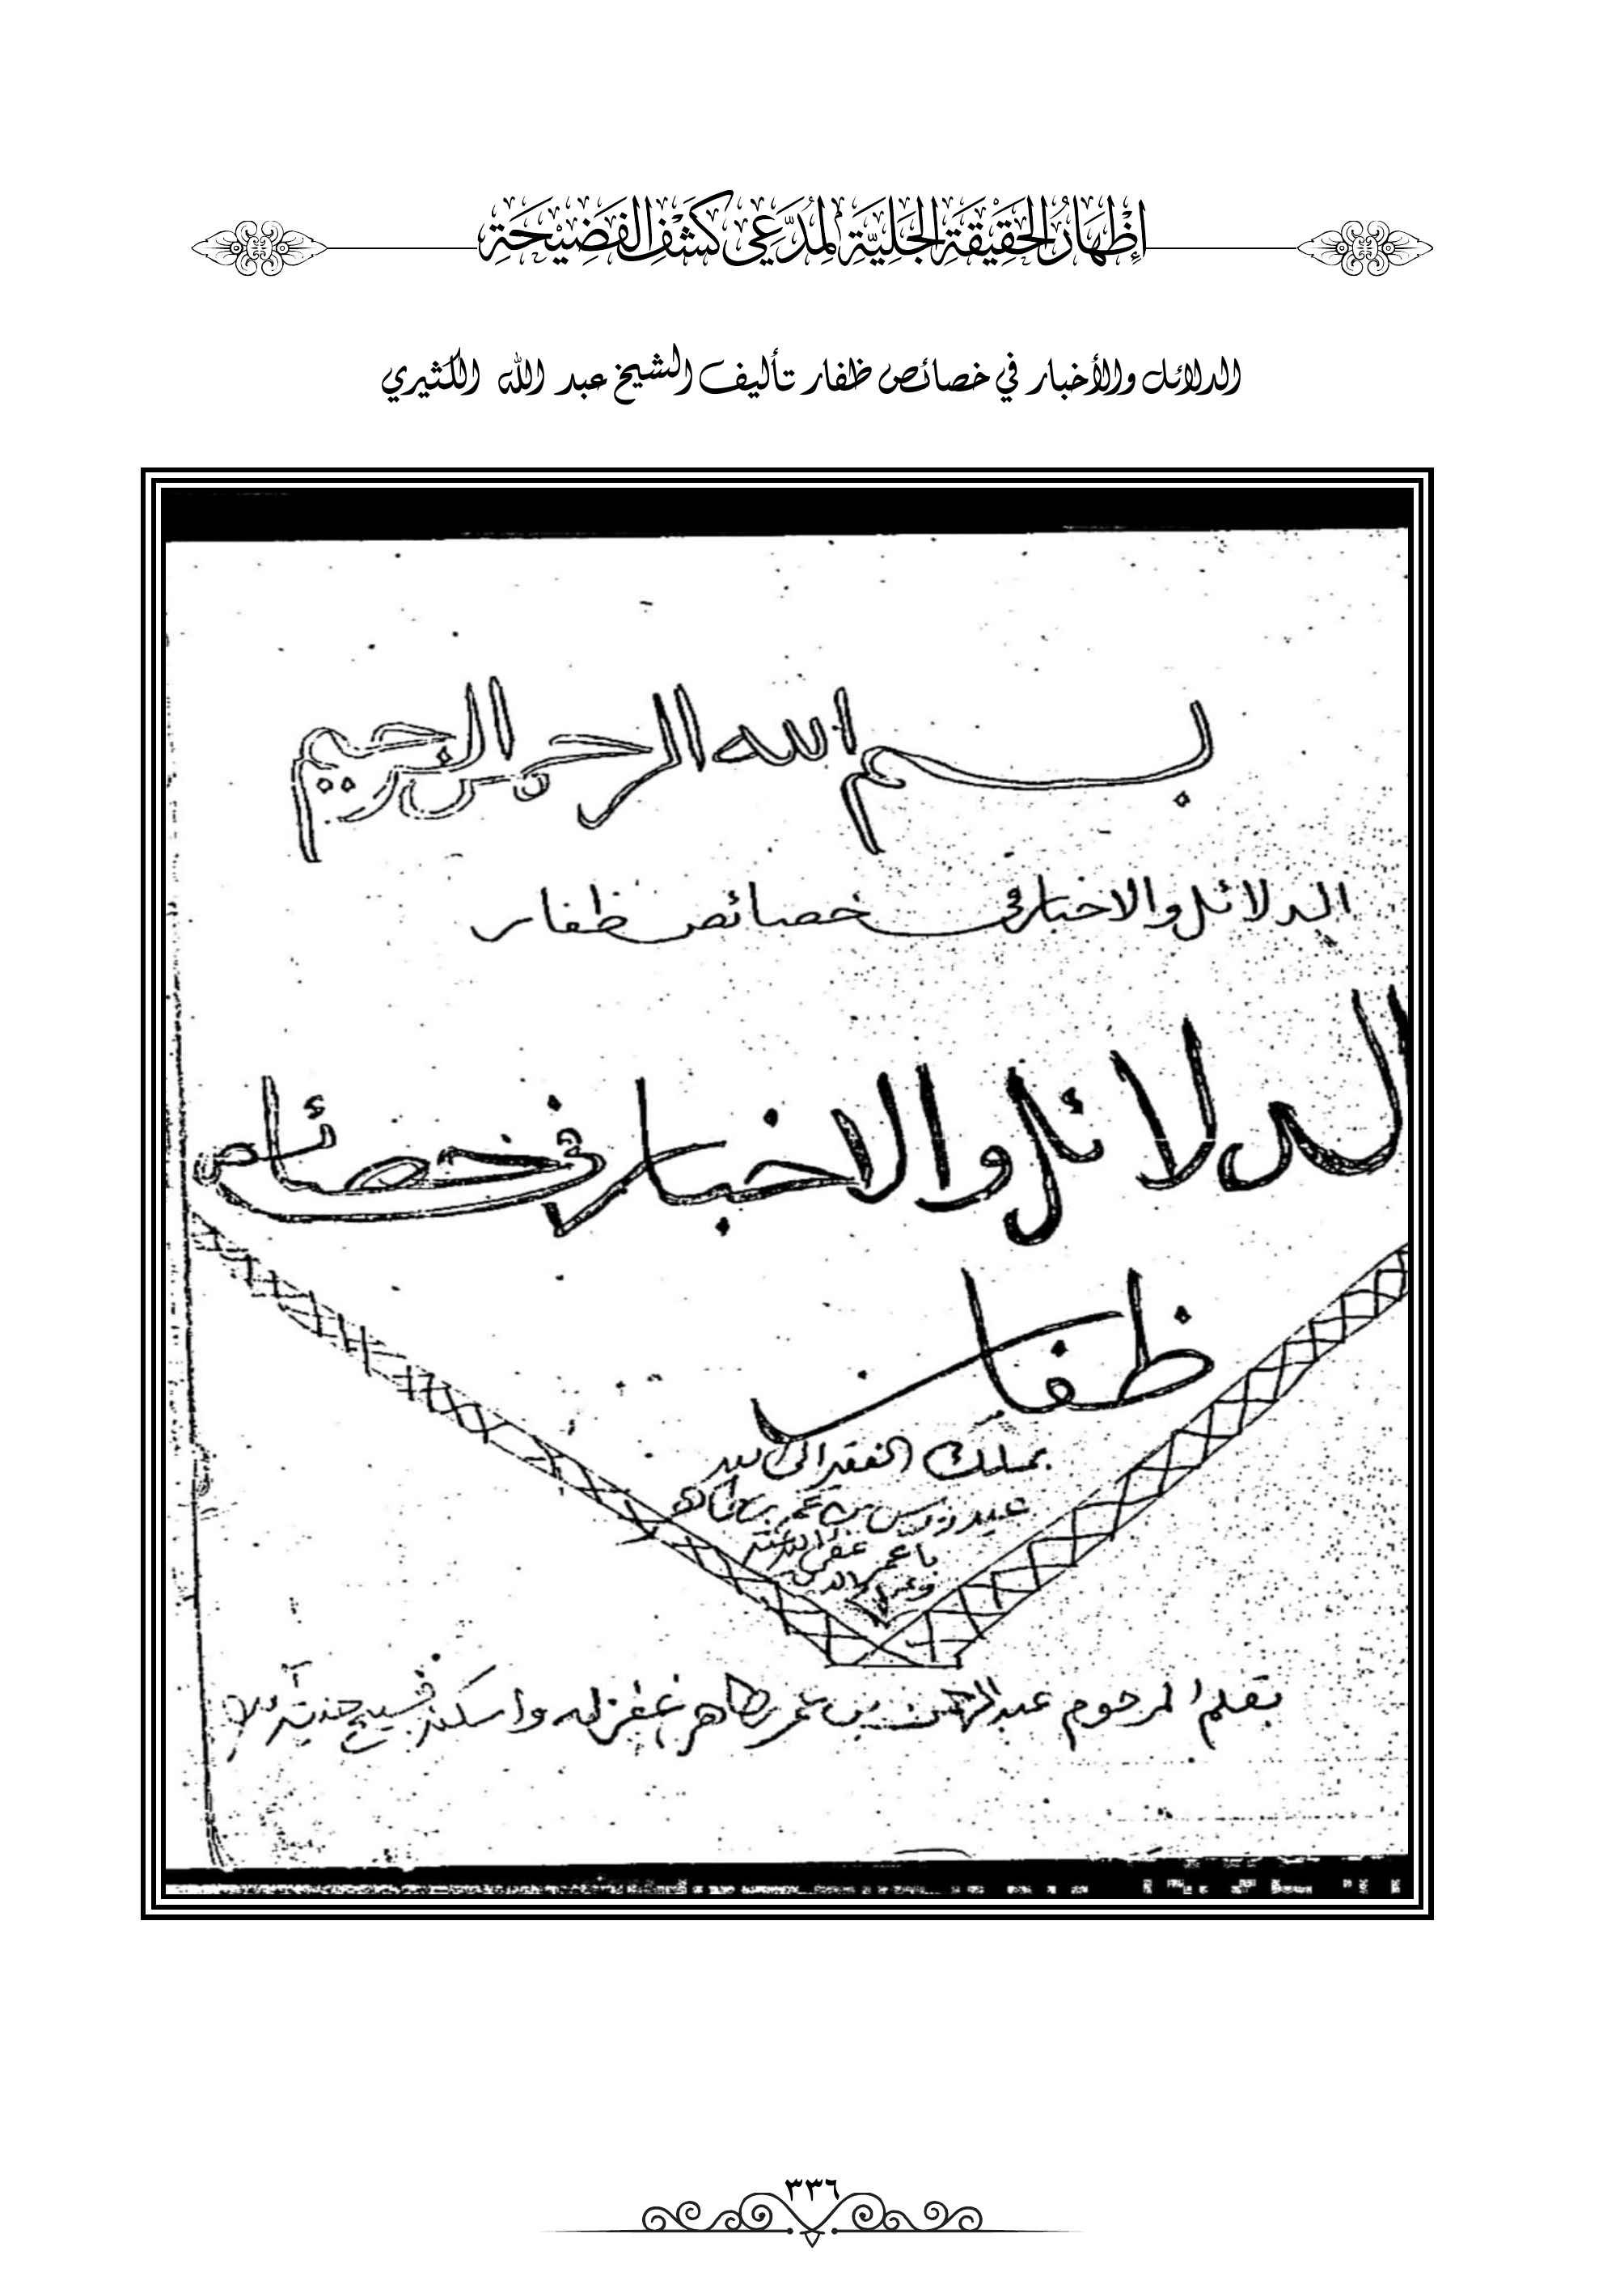 إِظْهَارُ الحَقِيْقَةِ الجَلِيَّةِ لِمُدَّعِي كَشْفِ الفَضِيْحَةِ
الدلائل والأخبار في خصائص ظفار تأليف الشيخ عبد الله الكثيري
بسم الله الرحمن الرحيم
الدلائل والاخبار في خصائص ظفار
الدلائل والاخبار في خصائص
ظفار
بملك الفقير الى الله
عيدروس بن عمر بن طاهر
باعمر عفى الله عنه
وعن والديه
بقلم المرحوم عبدالرحمن بن عمر بن طاهر غفر له واسكنه فسيح جنته
٣٣٦